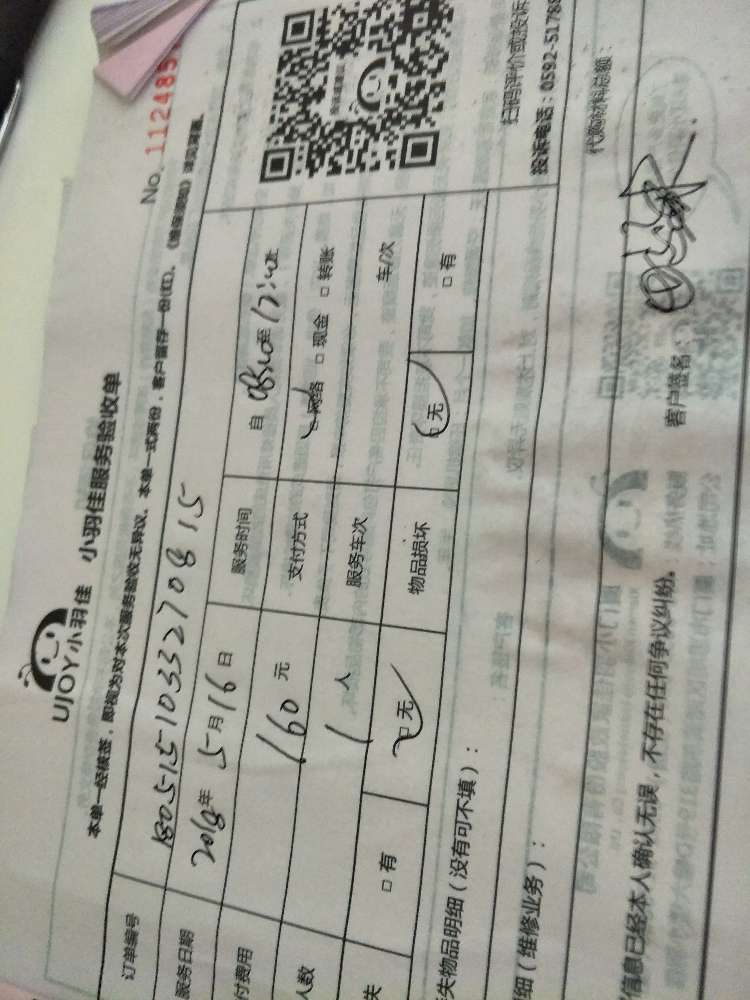 No. 112485
UJOY小羽佳 小羽佳服务验收单
本单一经核签，即视为对本次服务验收无异议。本单一式两份，客户留存一份(红)。
订单编号 180515103327 08 15
服务日期 2018年 5月16日 服务时间 自 至 17:
付费用 160 元 支付方式 网络 □ 现金 □ 转账
人数 1 人 服务车次 车/次
失 □ 有 □ 无 物品损坏 □ 无 □ 有
失物品明细（没有可不填）：
细（维修业务）：
扫码评价或投诉
投诉电话：0592-5178
代购材料总额：
信息已经本人确认无误，不存在任何争议纠纷。 客户签名：